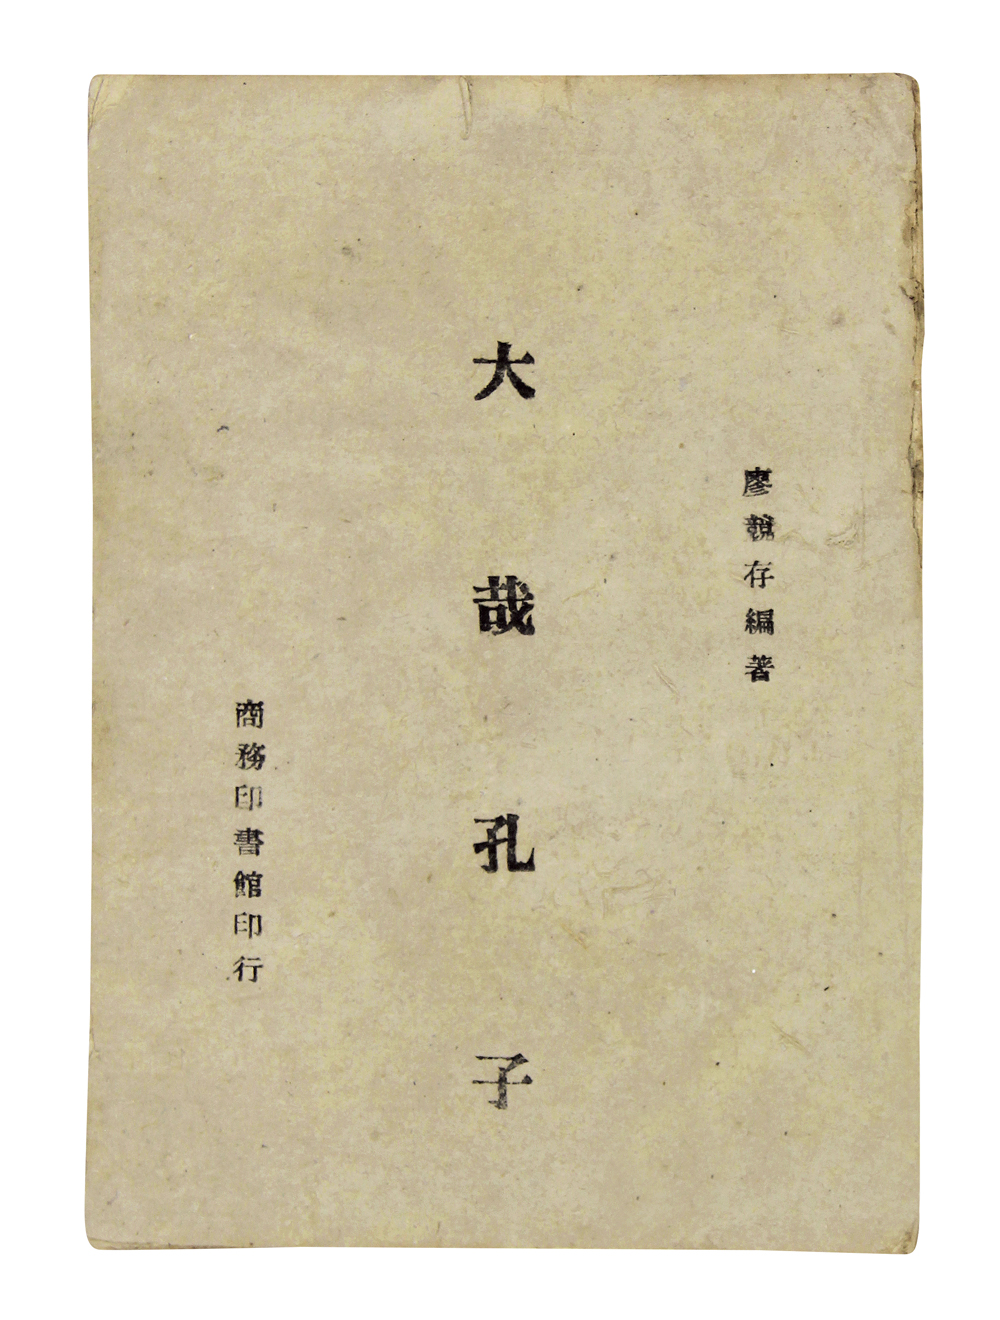 廖競存編著
大哉孔子
商務印書館印行